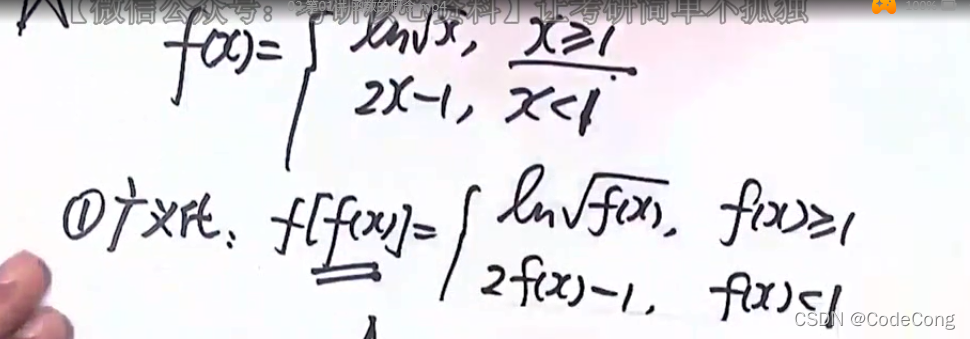 【微信公众号:考研 资料】让考研简单不孤独
100%
f(x)= { ln√x, x≥1
2x-1, x<1
①广义化: f[f(x)]= { ln√f(x), f(x)≥1
2f(x)-1, f(x)<1
CSDN @CodeCong